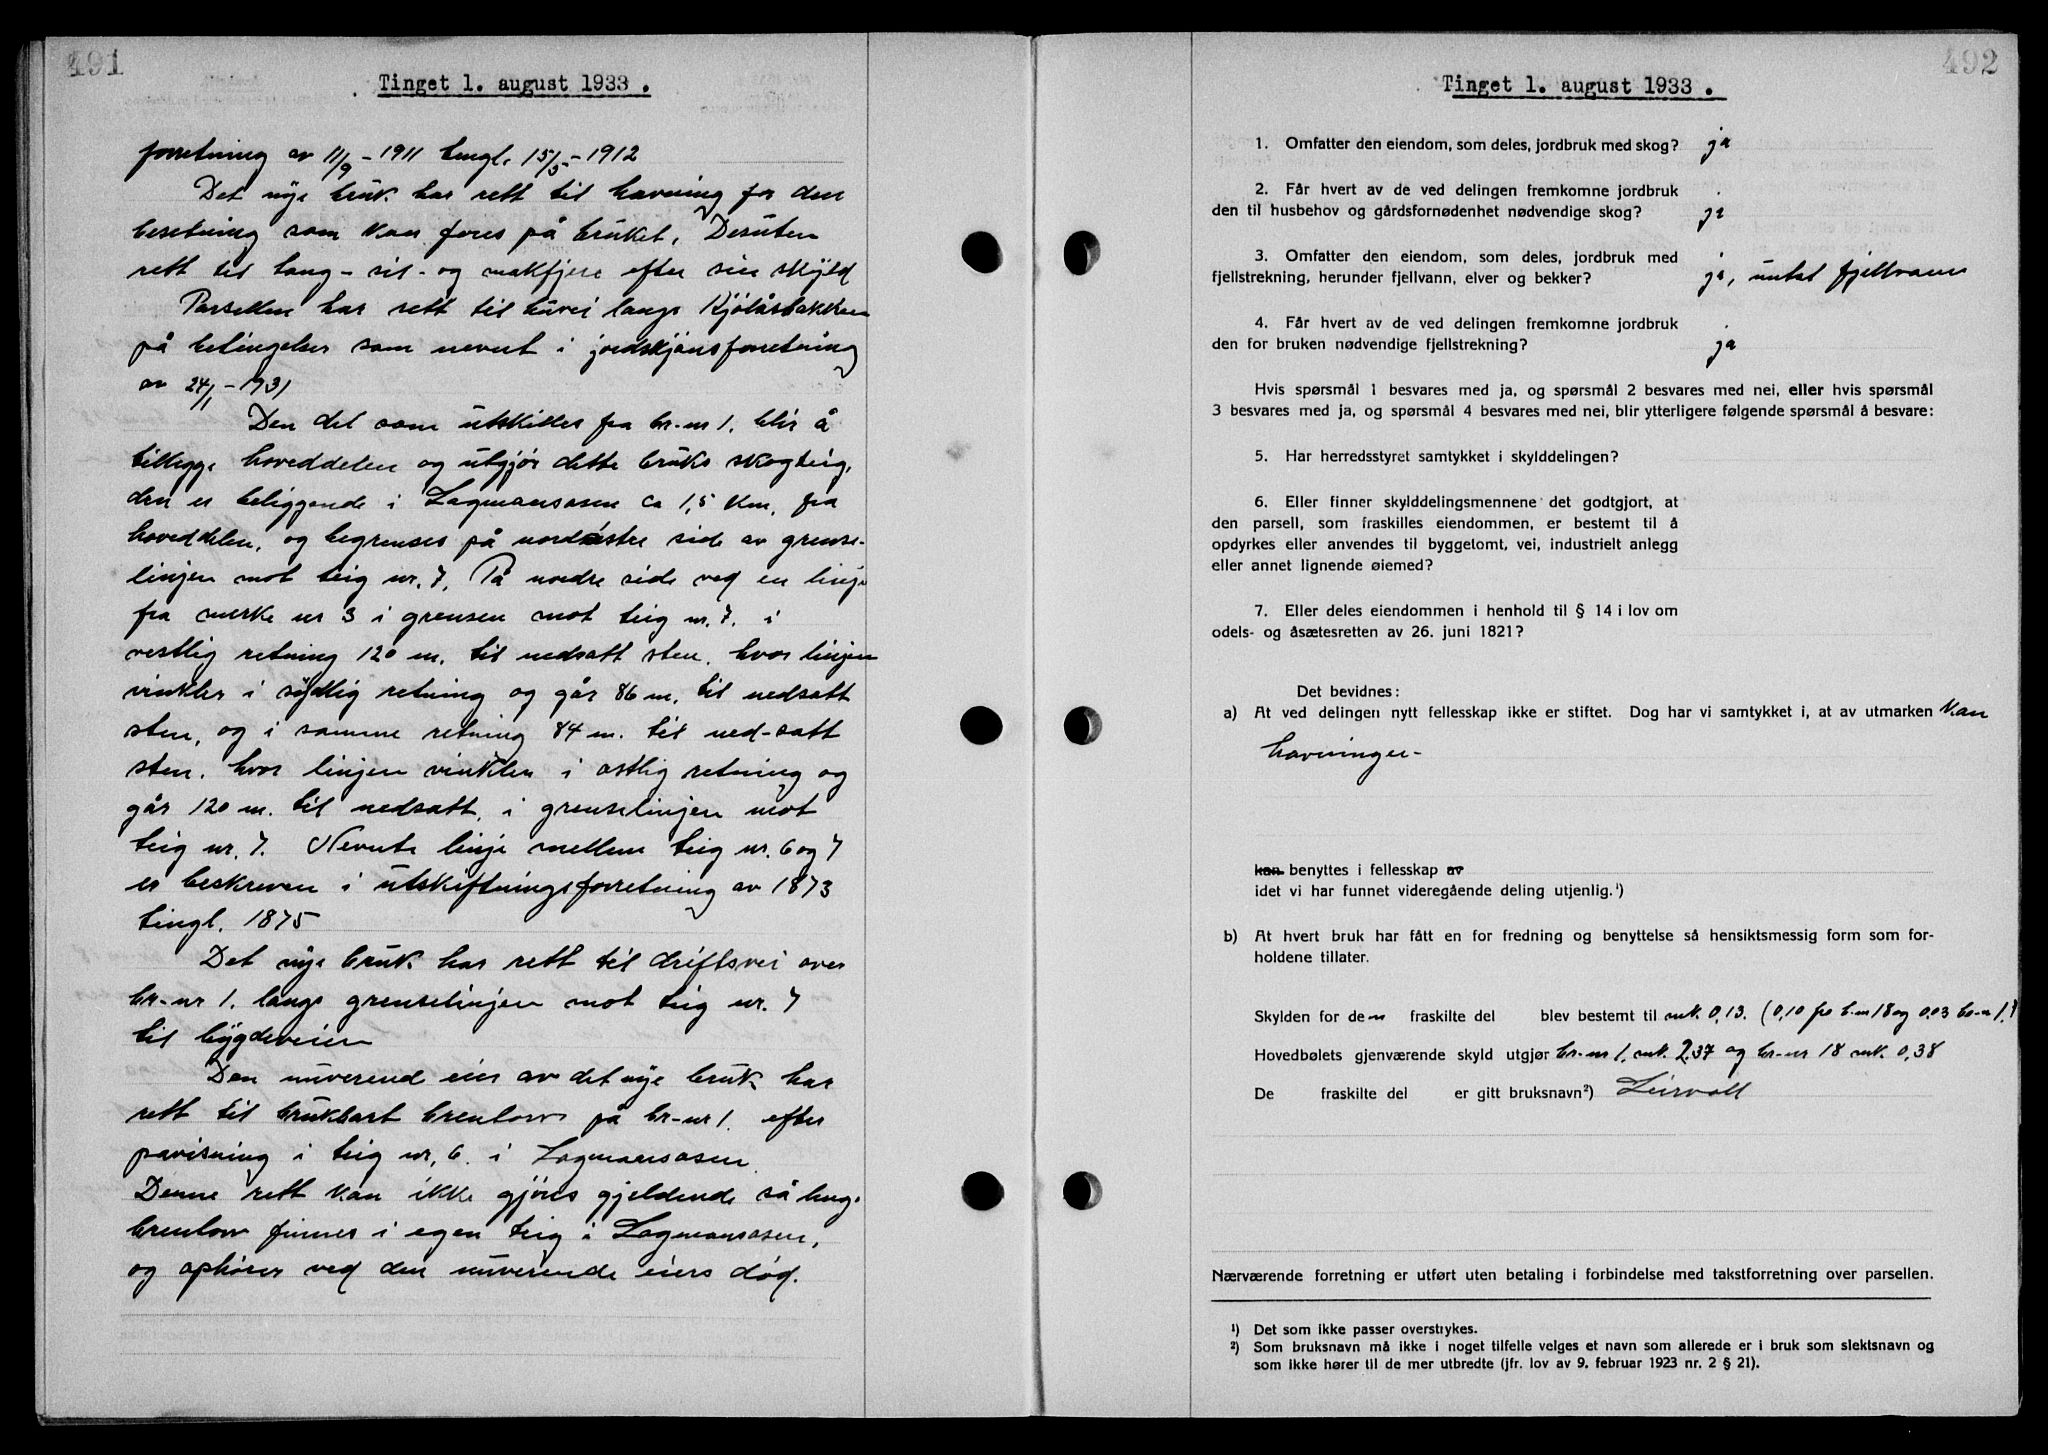 491
Tinget 1. august 1933.
forretning av 11/9 - 1911 tingl. 15/5 - 1912
Det nye bruk har rett til havning for den
besetning som kan fores på bruket, Desuten
rett til tang - sil - og makfjere efter sin skyld
Parsellen har rett til buvei langs Kjølåsbakken
på betingelser som nevnt i jordskjønsforretning
av 24/1 - 1931
Den del som utskilles fra br-nr 1. blir å
tillegge hoveddelen og utgjør dette bruks skogteig,
den er beliggende i Lagmansåsen ca 1,5 km. fra
hoveddelen, og begrenses på nordøstre side av grense-
linjen mot teig nr. 7. På nordre side ved en linje
fra merke nr 3 i grensen mot teig nr. 7. i
vestlig retning 120 m. til nedsatt sten. hvor linjen
vinkler i sydlig retning og går 86 m. til nedsatt
sten, og i samme retning 84 m. til ned-satt
sten. hvor linjen vinkler i østlig retning og
går 120 m. til nedsatt. i grenselinjen mot
teig nr. 7. Nevnte linje mellem teig nr. 6 og 7
er beskreven i utskiftningsforretning av 1873
tingl. 1875
Det nye bruk har rett til driftsvei over
br-nr 1. langs grenselinjen mot teig nr. 7
til bygdeveien
Den nuverend eier av det nye bruk har
rett til brukbart brentorv på br-nr 1. efter
påvisning i teig nr, 6. i Lagmansåsen.
Denne rett kan ikke gjøres gjeldende så leng.
brentorv finnes i egen teig i Lagmansåsen,
og ophører ved den nuverende eiers død.
492
Tinget 1. august 1933.
1. Omfatter den eiendom, som deles, jordbruk med skog? ja
2. Får hvert av de ved delingen fremkomne jordbruk
den til husbehov og gårdsfornødenhet nødvendige skog? ja
3. Omfatter den eiendom, som deles, jordbruk med
fjellstrekning, herunder fjellvann, elver og bekker? ja, untat fjellvann
4. Får hvert av de ved delingen fremkomne jordbruk
den for bruken nødvendige fjellstrekning? ja
Hvis spørsmål 1 besvares med ja, og spørsmål 2 besvares med nei, eller hvis spørsmål
3 besvares med ja, og spørsmål 4 besvares med nei, blir ytterligere følgende spørsmål å besvare:
5. Har herredsstyret samtykket i skylddelingen?
6. Eller finner skylddelingsmennene det godtgjort, at
den parsell, som fraskilles eiendommen, er bestemt til å
opdyrkes eller anvendes til byggetomt, vei, industrielt anlegg
eller annet lignende øiemed?
7. Eller deles eiendommen i henhold til § 14 i lov om
odels- og åsætesretten av 26. juni 1821?
Det bevidnes:
a) At ved delingen nytt fellesskap ikke er stiftet. Dog har vi samtykket i, at av utmarken kan
havninger-
kan benyttes i fellesskap av
idet vi har funnet videregående deling utjenlig.¹)
b) At hvert bruk har fått en for fredning og benyttelse så hensiktsmessig form som for-
holdene tillater.
Skylden for den fraskilte del blev bestemt til mk. 0,13. (0,10 fra b-nr 18 og 0,03 br-nr 1.)
Hovedbølets gjenværende skyld utgjør br-nr 1. mk. 2,37 og br-nr 18 mk. 0,38
De fraskilte del er gitt bruksnavn²) Leirvoll
Nærværende forretning er utført uten betaling i forbindelse med takstforretning over parsellen.
¹) Det som ikke passer overstrykes.
²) Som bruksnavn må ikke i noget tilfelle velges et navn som allerede er i bruk som slektsnavn og
som ikke hører til de mer utbredte (jfr. lov av 9. februar 1923 nr. 2 § 21).